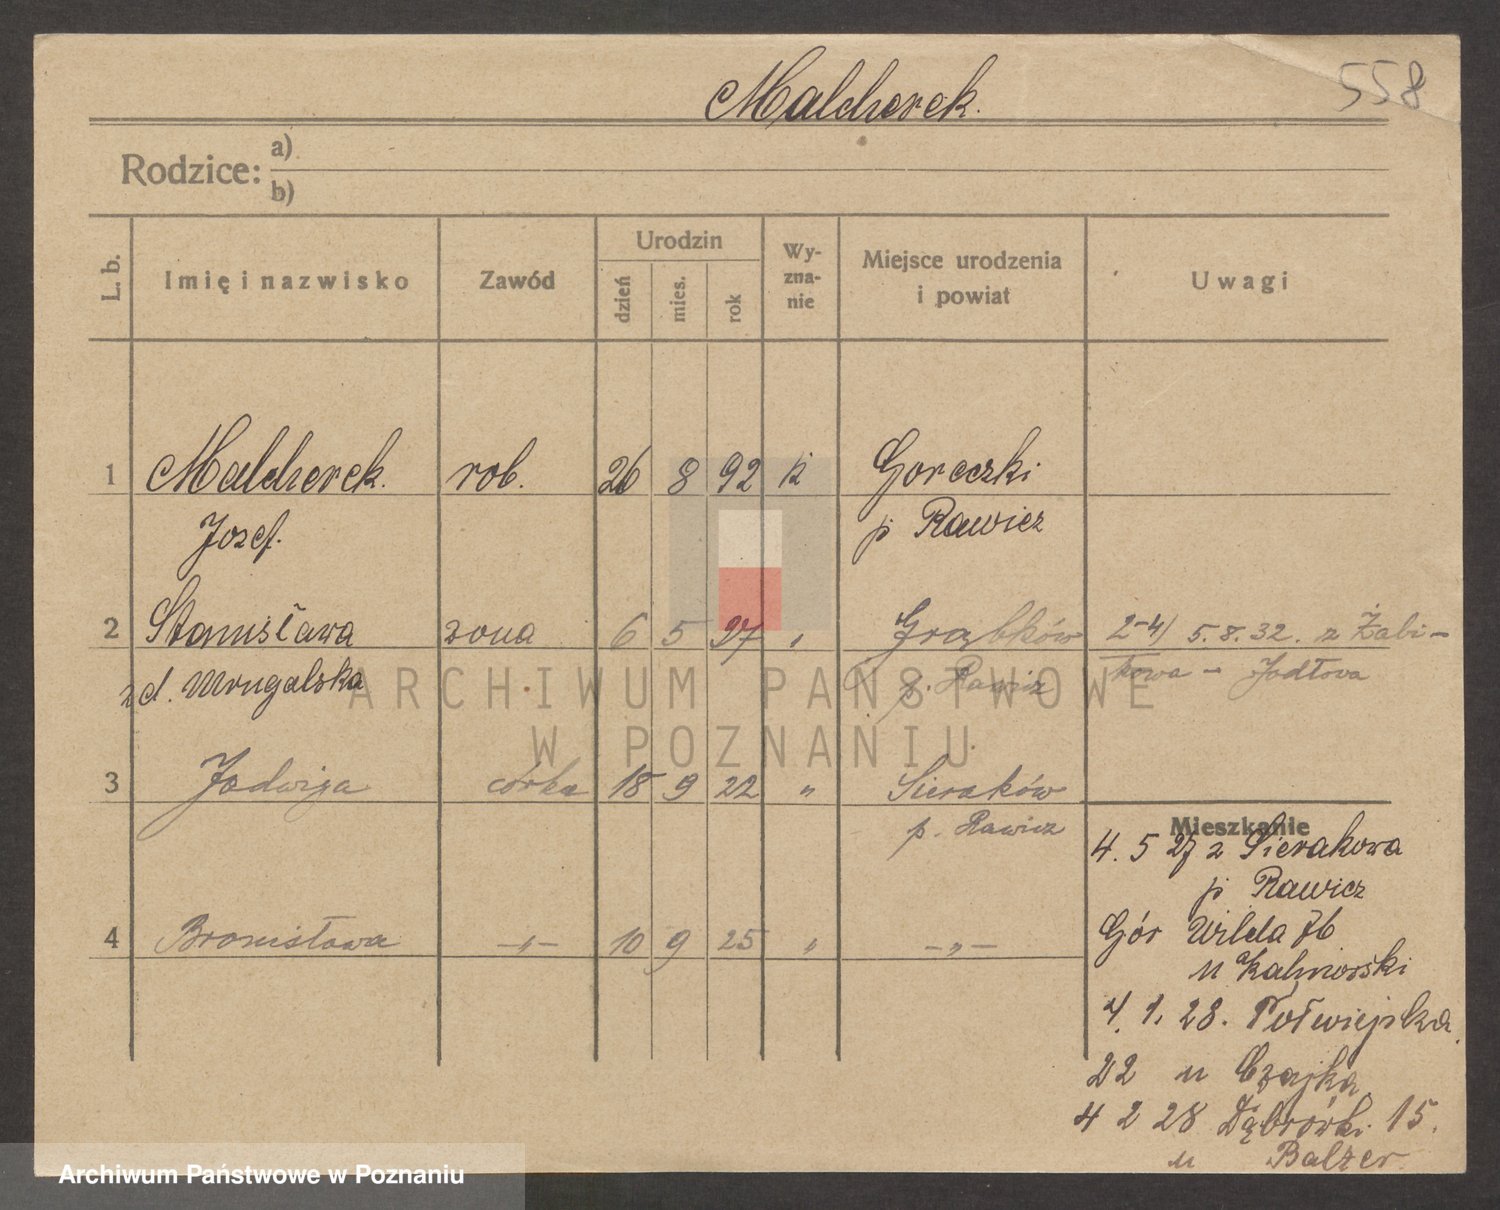 Malcherek.
558
Rodzice: a)
b)
L. b.
Imię i nazwisko
Zawód
Urodzin
dzień
mies.
rok
Wy-
zna-
nie
Miejsce urodzenia
i powiat
Uwagi
1 Malcherek. rob. 26 8 92 k Goreczki
Jozef. p Rawicz
2 Stanisława zona 6 5 97 " Grąbków 2-4/ 5. 8. 32. z Żabi-
z d. Mrugalska p. Rawicz kowa - Jodłova
3 Jadwiga córka 18 9 22 " Sieraków
p. Rawicz
4 Bronisława -"- 10 9 25 " -"-
Mieszkanie
4. 5 27 z Sierakowa
p Rawicz
Gór Wilda 76
u Kalinowski
4. 1. 28. Półwiejska
22 u Czajka
4 2 28 Dąbrówki 15.
u Balzer
ARCHIWUM PAŃSTWOWE
W POZNANIU
Archiwum Państwowe w Poznaniu